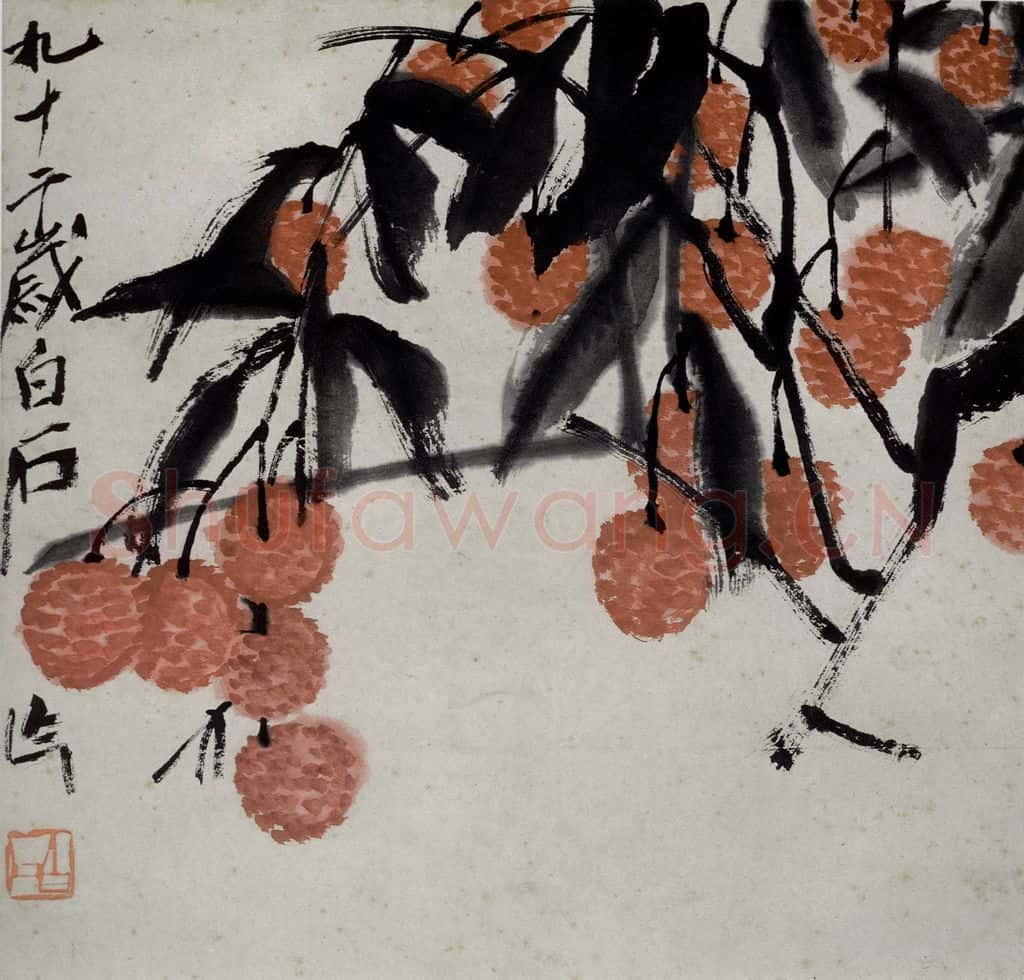 九十二歲白石作
Shufawang.CN